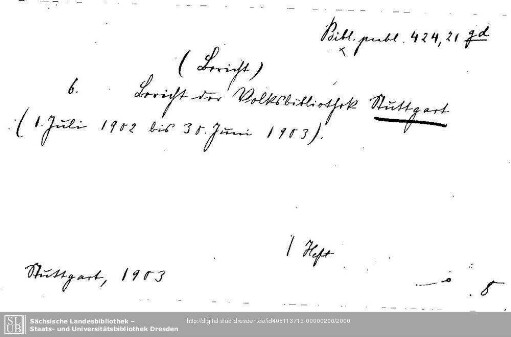 Bibl. publ. 424,21 qd
(Bericht)
6. Bericht der Volksbibliothek Stuttgart
(1. Juli 1902 bis 30. Juni 1903).
1 Heft
Stuttgart, 1903
8
Sächsische Landesbibliothek –
Staats- und Universitätsbibliothek Dresden